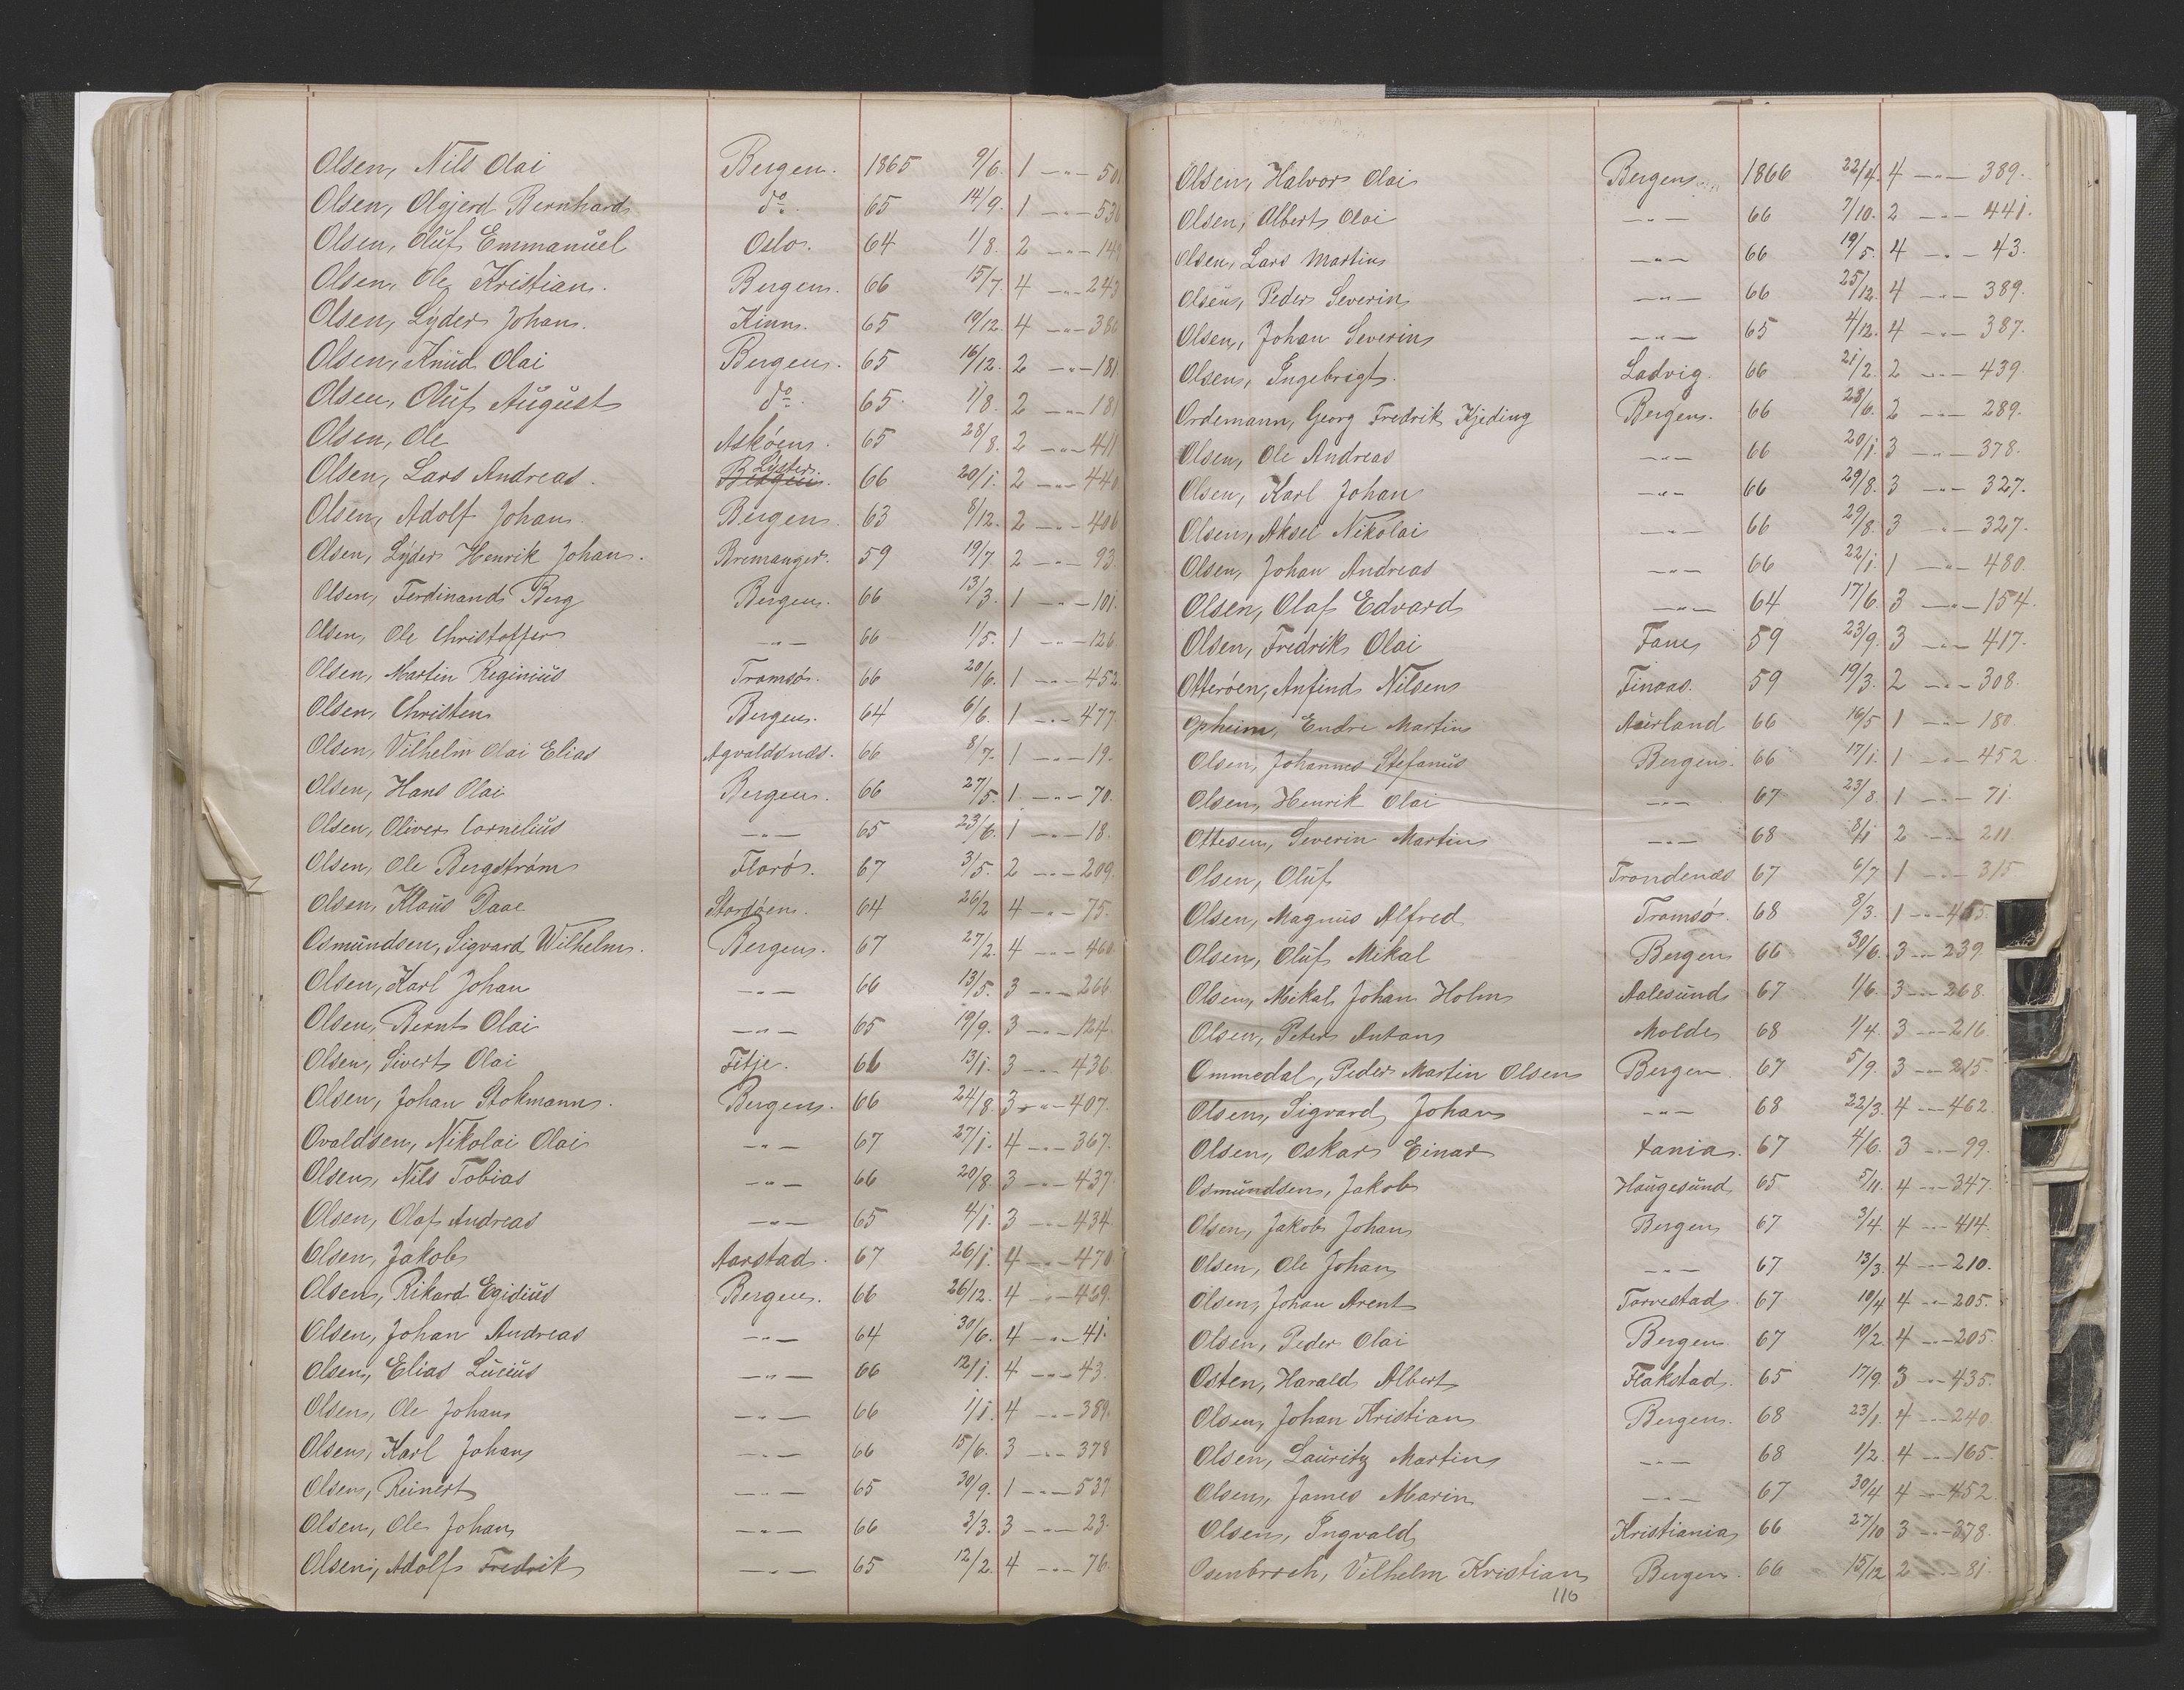 Olsen, Nils Olai Bergen. 1865 9/6. 1 -"- 501
Olsen, Olgjerd Bernhard do 65 14/9. 1 -"- 536
Olsen, Oluf Emmanuel Oslo. 64 1/8. 2 -"- 149
Olsen, Ole Kristian. Bergen. 66 15/7. 4 -"- 243
Olsen, Lyder Johan. Kinn. 65 19/12. 4 -"- 386
Olsen, Knud Olai Bergen. 65 16/12. 2 -"- 181
Olsen, Oluf August do 65. 1/8. 2 -"- 181
Olsen, Ole Askøen. 65 28/8. 2 -"- 411
Olsen, Lars Andreas. Lyster. 66 20/1. 2 -"- 440
Olsen, Adolf Johan. Bergen. 63 8/12. 2 -"- 406
Olsen, Lyder Henrik Johan. Bremanger. 59 19/7 2 -"- 93.
Olsen, Ferdinand Berg Bergen. 66 13/3. 1 -"- 101.
Olsen, Ole Christoffer -"- 66 1/5. 1 -"- 126
Olsen, Martin Reginius Tromsø. 66 20/6. 1 -"- 452
Olsen, Christen Bergen. 64 6/6. 1 -"- 477
Olsen, Vilhelm Olai Elias Agvaldsnæs. 66 8/7. 1 -"- 19.
Olsen, Hans Olai Bergen. 66 27/5. 1 -"- 70.
Olsen, Oliver Cornelius -"- 65 23/6. 1 -"- 18.
Olsen, Ole Bergstrøm Florø. 67 3/5. 2 -"- 209.
Olsen, Klaus Daae Stordøen. 64 26/2 4 -"- 75.
Osmundsen, Sigvard Wilhelm. Bergen. 67 27/2. 4 -"- 460
Olsen, Karl Johan -"- 66 13/5. 3 -"- 266
Olsen, Bernt Olai -"- 65 19/9. 3 -"- 124.
Olsen, Sivert Olai Fitje. 66 13/1. 3 -"- 436
Olsen, Johan Stokmann. Bergen. 66 24/8. 3 -"- 407.
Ovaldsen, Nikolai Olai -"- 67 27/1. 4 -"- 367.
Olsen, Nils Tobias -"- 66 20/8. 3 -"- 437
Olsen, Olaf Andreas -"- 65 4/1. 3 -"- 434
Olsen, Jakob Aarstad. 67 26/1. 4 -"- 470
Olsen, Rikard Egidius Bergen. 66 26/12. 4 -"- 469.
Olsen, Johan Andreas -"- 64 30/6. 4 -"- 41.
Olsen, Elias Lucius -"- 66 12/1. 4 -"- 43.
Olsen, Ole Johan -"- 66 1/1. 4 -"- 389.
Olsen, Karl Johan -"- 66 15/6. 3 -"- 378
Olsen, Reinert -"- 65 30/9. 1 -"- 537
Olsen, Ole Johan -"- 66 3/3. 3 -"- 23.
Olsen, Adolf Fredrik -"- 65 12/2. 4 -"- 76.
Olsen, Halvor Olai Bergen. 1866 22/4. 4 -"- 389.
Olsen, Albert Olai -"- 66 7/10. 2 -"- 441.
Olsen, Lars Martin -"- 66 19/5. 4 -"- 43.
Olsen, Peder Severin -"- 66 25/12. 4 -"- 389.
Olsen, Johan Severin -"- 65 4/12. 4 -"- 387.
Olsen, Ingebrigt. Ladvig. 66 21/2. 2 -"- 439.
Ordemann, Georg Fredrik Kjeding Bergen. 66 28/6. 2 -"- 289.
Olsen, Ole Andreas -"- 66 20/1. 3 -"- 378.
Olsen, Karl Johan -"- 66 29/8. 3 -"- 327.
Olsen, Aksel Nikolai -"- 66 29/8. 3 -"- 327.
Olsen, Johan Andreas -"- 66 22/1. 1 -"- 480.
Olsen, Olaf Edvard -"- 64 17/6. 3 -"- 154.
Olsen, Fredrik Olai Fane 59 23/9. 3 -"- 417.
Otterøen, Anfind Nilsen Finaas. 59 19/3. 2 -"- 308.
Opheim, Endre Martin Aurland 66 16/5 1 -"- 180.
Olsen, Johannes Stefanus Bergen. 66 17/1. 1 -"- 452.
Olsen, Henrik Olai -"- 67 23/8. 1 -"- 71.
Ottesen, Severin Martin -"- 68 8/1 2 -"- 211
Olsen, Oluf Trondenæs 67 6/7 1 -"- 315
Olsen, Magnus Alfred Tromsø. 68 8/3. 1 -"- 455.
Olsen, Oluf Mikal Bergen 66 30/6. 3 -"- 239.
Olsen, Mikal Johan Holm Aalesund 67 1/6. 3 -"- 268.
Olsen, Peter Antan Molde 68 1/4. 3 -"- 216
Ommedal, Peder Martin Olsen Bergen 67 5/9. 3 -"- 215.
Olsen, Sigvard Johan -"- 68 22/3. 4 -"- 462.
Olsen, Oskar Einar Xania. 67 4/6. 3 -"- 99.
Osmundsen, Jakob Haugesund 65 5/11. 4 -"- 347
Olsen, Jakob Johan Bergen 67 3/4. 4 -"- 414.
Olsen, Ole Johan -"- 67 13/3. 4 -"- 210.
Olsen, Johan Arent Torvestad. 67 10/4 4 -"- 205.
Olsen, Peder Olai Bergen 67 19/2. 4 -"- 205.
Osten, Harald Albert Flakstad. 65 17/9. 3 -"- 435.
Olsen, Johan Kristian Bergen. 68 23/1. 4 -"- 240
Olsen, Lauritz Martin -"- 68 1/2. 4 -"- 165.
Olsen, James Marin -"- 67 30/4 4 -"- 452
Olsen, Ingvald Kristiania 66 27/10 3 -"- 378.
Osenbroch, Vilhelm Kristian Bergen. 66 15/12 2 -"- 81.
116